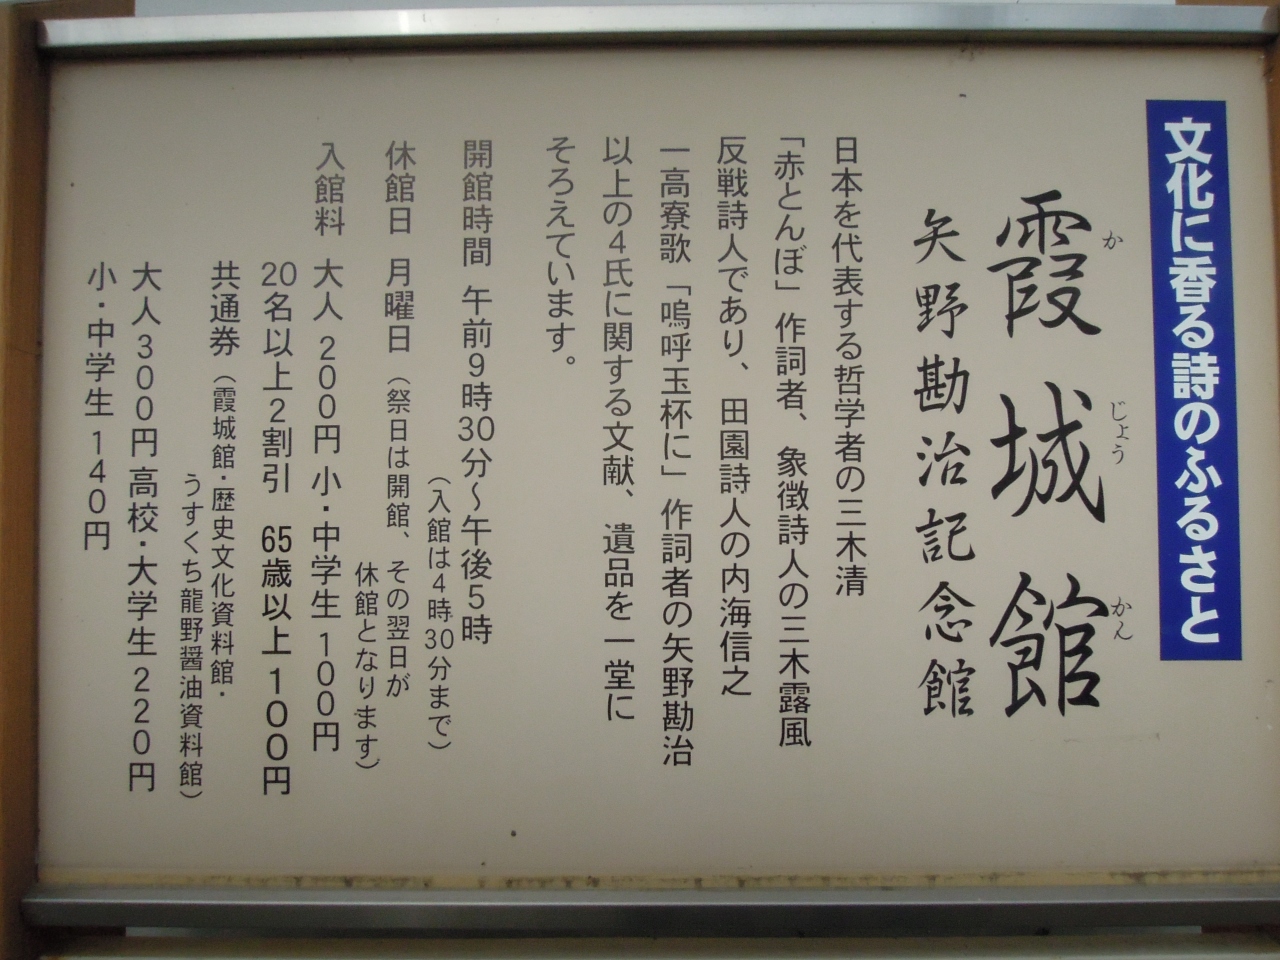 文化に香る詩のふるさと
霞城館
か じょう かん
矢野勘治記念館
日本を代表する哲学者の三木清
「赤とんぼ」作詞者、象徴詩人の三木露風
反戦詩人であり、田園詩人の内海信之
一高寮歌「嗚呼玉杯に」作詞者の矢野勘治
以上の4氏に関する文献、遺品を一堂に
そろえています。
開館時間 午前9時30分〜午後5時
(入館は4時30分まで)
休館日 月曜日(祭日は開館、その翌日が
休館となります)
入館料 大人 200円 小・中学生 100円
20名以上2割引 65歳以上 100円
共通券(霞城館・歴史文化資料館・
うすくち龍野醤油資料館)
大人300円 高校・大学生 220円
小・中学生 140円